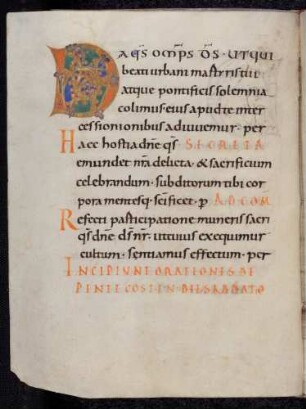 DA EQS OMPS DS · UT QUI
beati urbani martyris tui
atque pontificis solemnia
colimus · eius apud te inter
cessionibus adiuvemur · per
Haec hostia dne qs SECRETA
emundet nra delicta · & sacrificium
celebrandum · subditorum tibi cor
pora mentesq; scificet · p AD COM
Refecti participatione muneris sacri
qs dne ds nr · ut cuius exequimur
cultum · sentiamus effectum · per
INCIPIUNT ORATIONES DE
PENTECOSTEN · DIE SABBATO